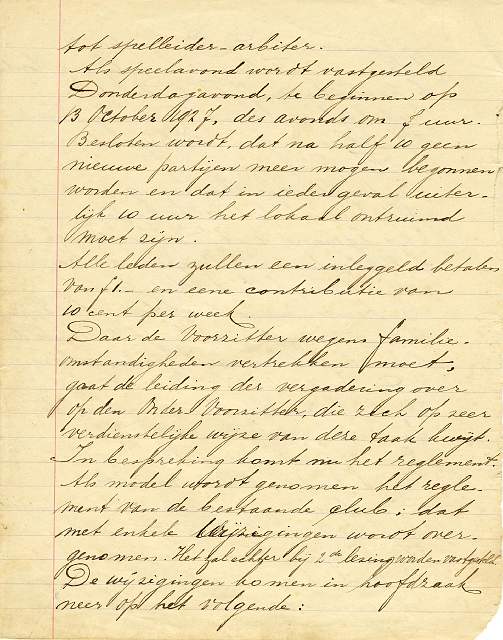 tot spelleider-arbiter.
Als speelavond wordt vastgesteld
Donderdagavond, te beginnen op
13 October 1927, des avonds om 7 uur.
Besloten wordt, dat na half 10 geen
nieuwe partijen meer mogen begonnen
worden en dat in ieder geval uiter-
lijk 10 uur het lokaal ontruimd
moet zijn.
Alle leden zullen een inleggeld betalen
van f1.- en eene contributie van
10 cent per week.
Daar de Voorzitter wegens familie-
omstandigheden vertrekken moet,
gaat de leiding der vergadering over
op den Onder Voorzitter, die zich op zeer
verdienstelijke wijze van deze taak kwijt.
In bespreking komt nu het reglement.
Als model wordt genomen het regle-
ment van de bestaande club; dat
met enkele wijzigingen wordt over-
genomen. Het zal echter bij 2de lezing worden vastgesteld.
De wijzigingen komen in hoofdzaak
neer op het volgende: